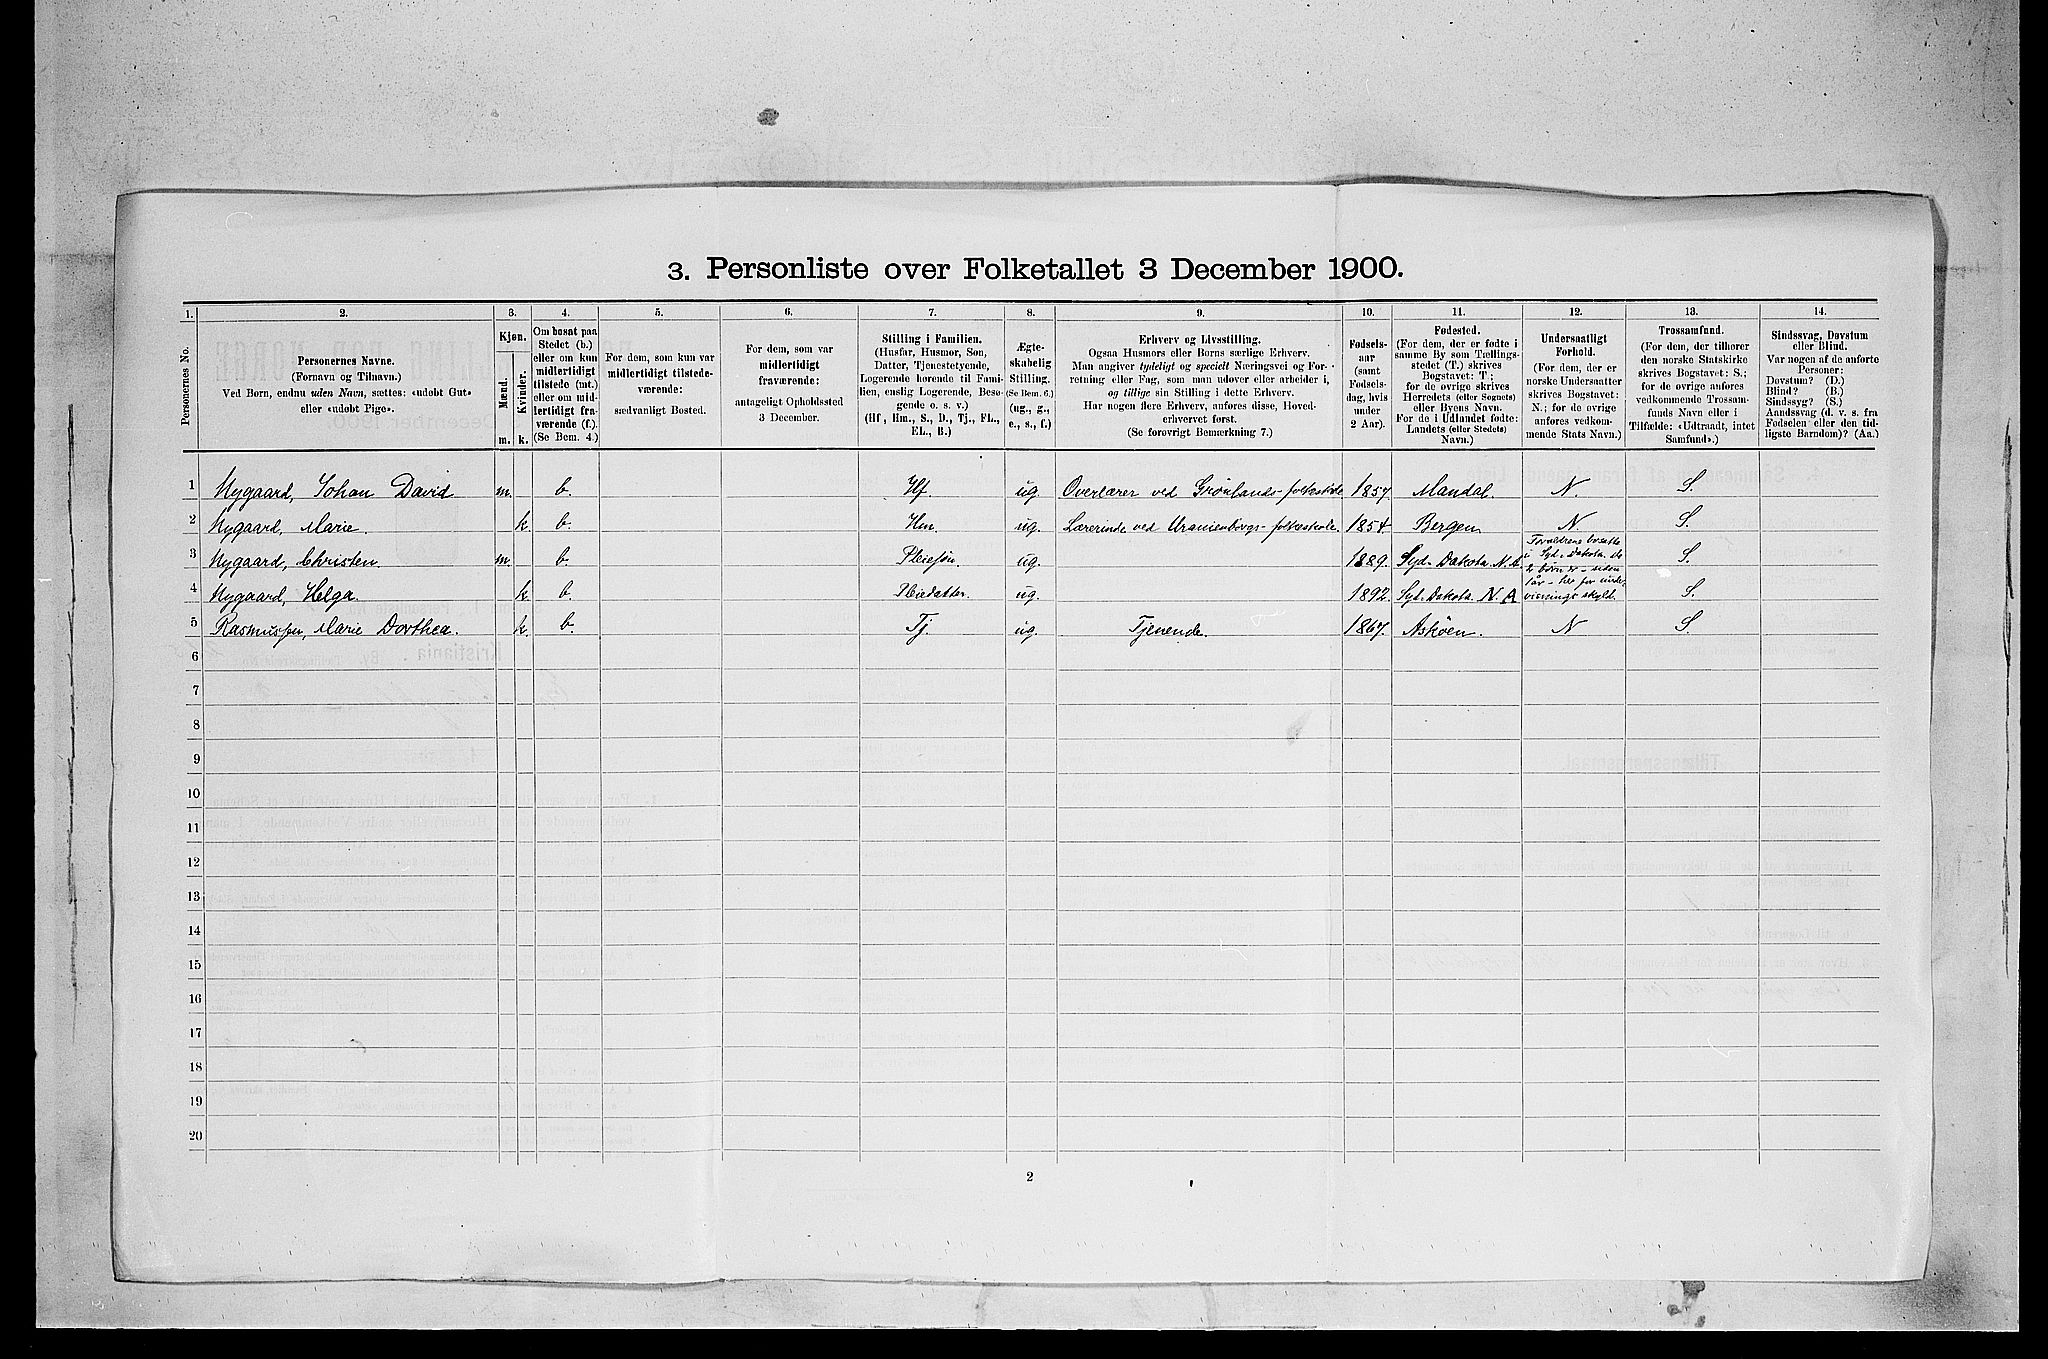 3. Personliste over Folketallet 3 December 1900.
1. 2. 3. 4. 5. 6. 7. 8. 9. 10. 11. 12. 13. 14.
Personernes No.
Personernes Navne.
(Fornavn og Tilnavn.)
Ved Børn, endnu uden Navn, sættes: «udøbt Gut»
eller «udøbt Pige».
Kjøn.
Mænd.
Kvinder.
m. k.
Om bosat paa
Stedet (b.)
eller om kun
midlertidigt
tilstede (mt.)
eller om mid-
lertidigt fra-
værende (f.).
(Se Bem. 4.)
For dem, som kun var
midlertidigt tilstede-
værende:
sædvanligt Bosted.
For dem, som var
midlertidigt
fraværende:
antageligt Opholdssted
3 December.
Stilling i Familien.
(Husfar, Husmor, Søn,
Datter, Tjenestetyende,
Logerende hørende til Fami-
lien, enslig Logerende, Besø-
gende o. s. v.)
(Hf, Hm., S., D., Tj., FL.,
EL., B.)
Ægte-
skabelig
Stilling.
(Se Bem. 6.)
(ug., g.,
e., s., f.)
Erhverv og Livsstilling.
Ogsaa Husmors eller Børns særlige Erhverv.
Man angiver tydeligt og specielt Næringsvei og For-
retning eller Fag, som man udøver eller arbeider i,
og tillige sin Stilling i dette Erhverv.
Har nogen flere Erhverv, anføres disse, Hoved-
erhvervet først.
(Se forøvrigt Bemærkning 7.)
Fødsels-
aar
(samt
Fødsels-
dag, hvis
under
2 Aar).
Fødested.
(For dem, der er fødte i
samme By som Tællings-
stedet (T.) skrives
Bogstavet: T;
for de øvrige skrives
Herredets (eller Sognets)
eller Byens Navn.
For de i Udlandet fødte:
Landets (eller Stedets)
Navn.)
Undersaatligt
Forhold.
(For dem, der er
norske Undersaatter
skrives Bogstavet:
N.; for de øvrige
anføres vedkom-
mende Stats Navn.)
Trossamfund.
(For dem, der tilhører
den norske Statskirke
skrives Bogstavet: S.;
for de øvrige anføres
vedkommende Trossam-
funds Navn eller i
Tilfælde: «Udtraadt, intet
Samfund».)
Sindssvag, Døvstum
eller Blind.
Var nogen af de anførte
Personer:
Døvstum? (D.)
Blind? (B.)
Sindssyg? (S.)
Aandssvag (d. v. s. fra
Fødselen eller den tid-
ligste Barndom)? (Aa.)
1 Nygaard, Johan David m. b. Hf. ug. Overlærer ved Grønlands folkeskole 1857. Mandal. N. S.
2 Nygaard, Marie. k. b. Hm ug. Lærerinde ved Uranienborgs-folkeskole. 1854. Bergen N. S.
3 Nygaard, Christen. m. b. Pleiesøn. ug. 1889. Syd. Dakota N. A. S.
Forældrene bosatte
i Syd. Dakota. de
2 børn er
for under-
visnings skyld.
4 Nygaard, Helga. k. b. Pleiedatter. ug. 1892. Syd. Dakota. N. A S.
5 Rasmussen, Marie Dorthea. k. b. Tj. ug. Tjenende. 1867. Askøen. N S.
6
7
8
9
10
11
12
13
14
15
16
17
18
19
20
2